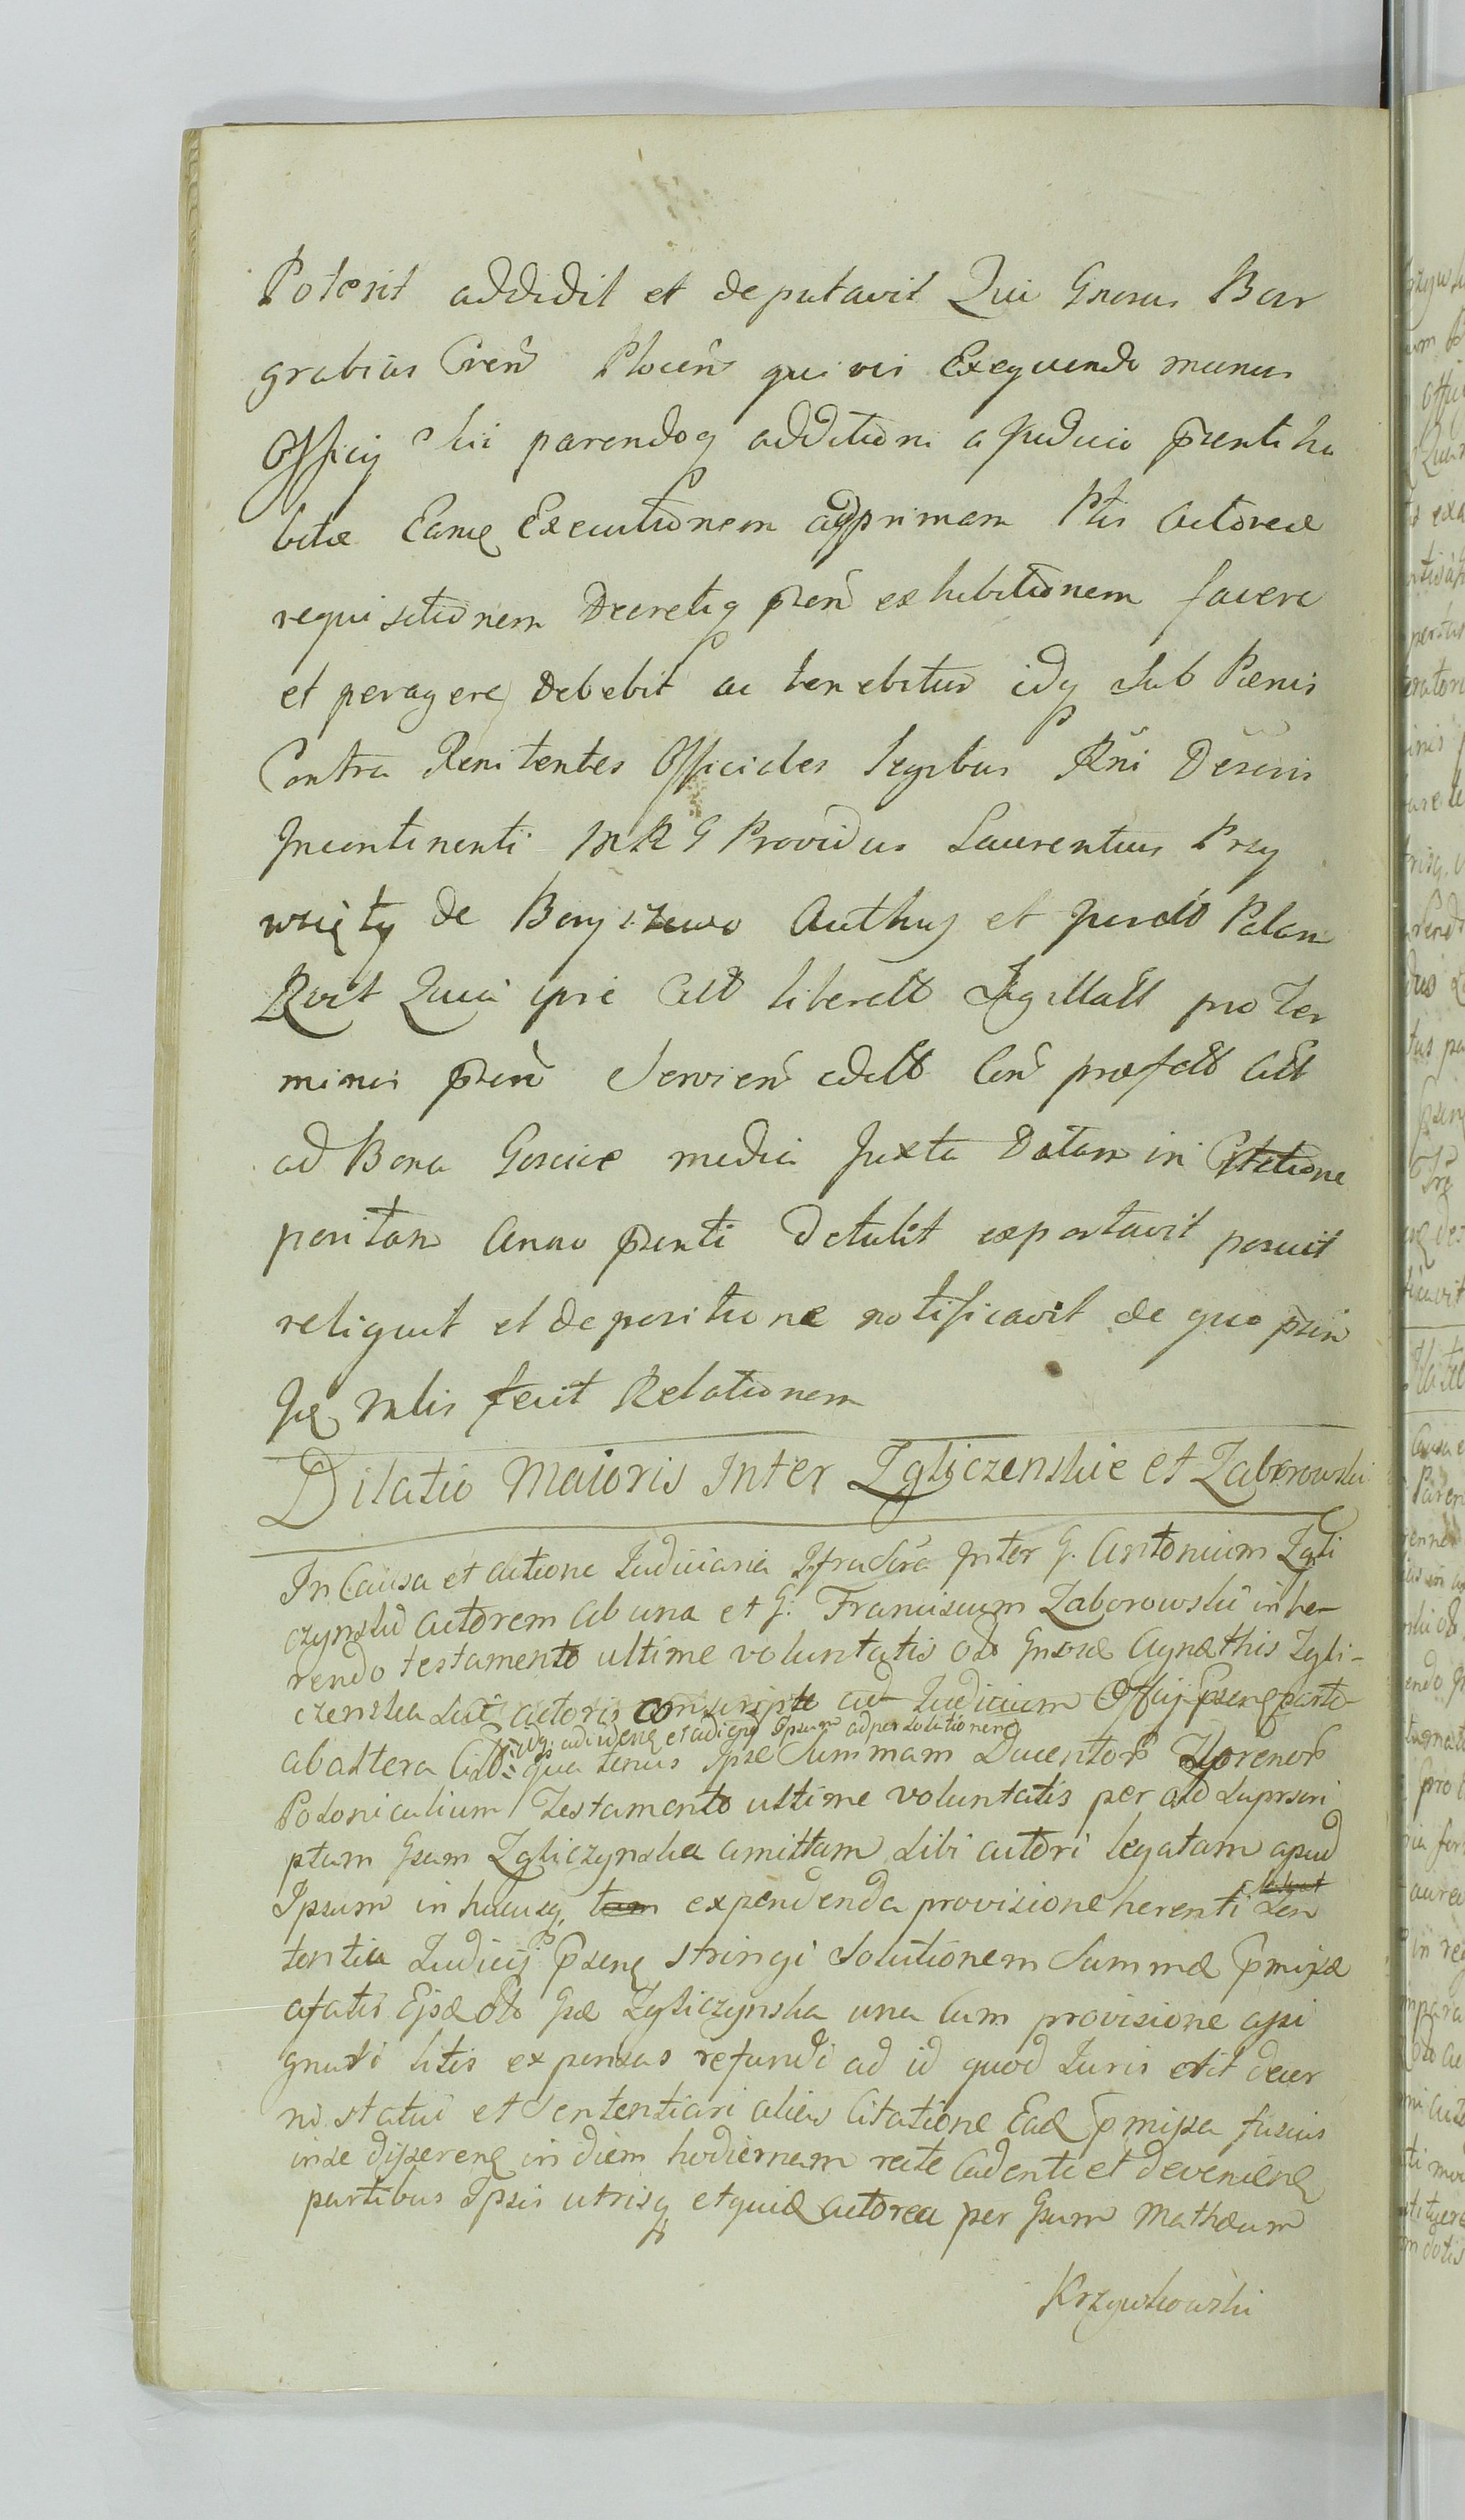 Poterit addidit et deputavit Qui Gnosus Bur
grabius Cren̄ Plocen̄ quivis Exequendo munus
Officij sui parendoq additioni a Judicio p̄senti ha
bitæ Eamq Executionem ad primam Ptis actoreæ
requisitionem Decretiq p̄sen̄ exhibitionem facere
et peragere debebit ac tenebitur idq sub Pænis
Contra Renitentes Officiales legibus Rñi Descris
Incontinenti MRG Providus Laurentius Przy
wzięty de Boryszewo Authus et Jurat Palam
Rvit Quia ipse Citt liberalt Sigillatt pro Ter
minis p̄sen̄ Servien̄ edalt Con̄ præfalt Citt
ad Bona Goscice media Juxta Datam in Citatione
positam Anno p̄senti detulit exportavit posuit
reliquit et depositione notificavit de quo p̄sen̄
Jq mlis fecit Relationem
Dilatio Maioris Inter Zgliczenskie et Zaborowski
In Causa et actione Judiciaria Ifra Scra Inter G. Antonium Zgli
czynski actorem ab una et G. Franciscum Zaborowski inhe-
rendo testamento ultime voluntatis olo Gnosæ Agnæthis Zgli-
czenska suæ actoris conscripto ad Judicium Officij p̄senq parte
idq: adiudenq et adienq Ipsum ad persolutionem
ab altera Citt: qua tenus Ipse Summam Ducentors florenors
Polonicalium Testamento ultime voluntatis per olo suprscri
ptam Gsam Zgliczynska amittam sibi actori legatam apud
Ipsum in hucusq, expendenda provisione herenti Sen
tentia Judicij p̄senq stringi Solutionem Summæ p̄mißæ
afatis Ejsæ olo Gsæ Zgliczynska una cum provisione aßi
gnari litis expensas refundi ad id quod Juris erit decer
ni statui et Sententiari alias Citatione Eaq p̄mißa fusius
in se dißerenq in diem hodiernam recte Cadenti et devenienq
partibus Ipsis utrisq et quiq actorea per Gsum Mathæum
Krzywkowski